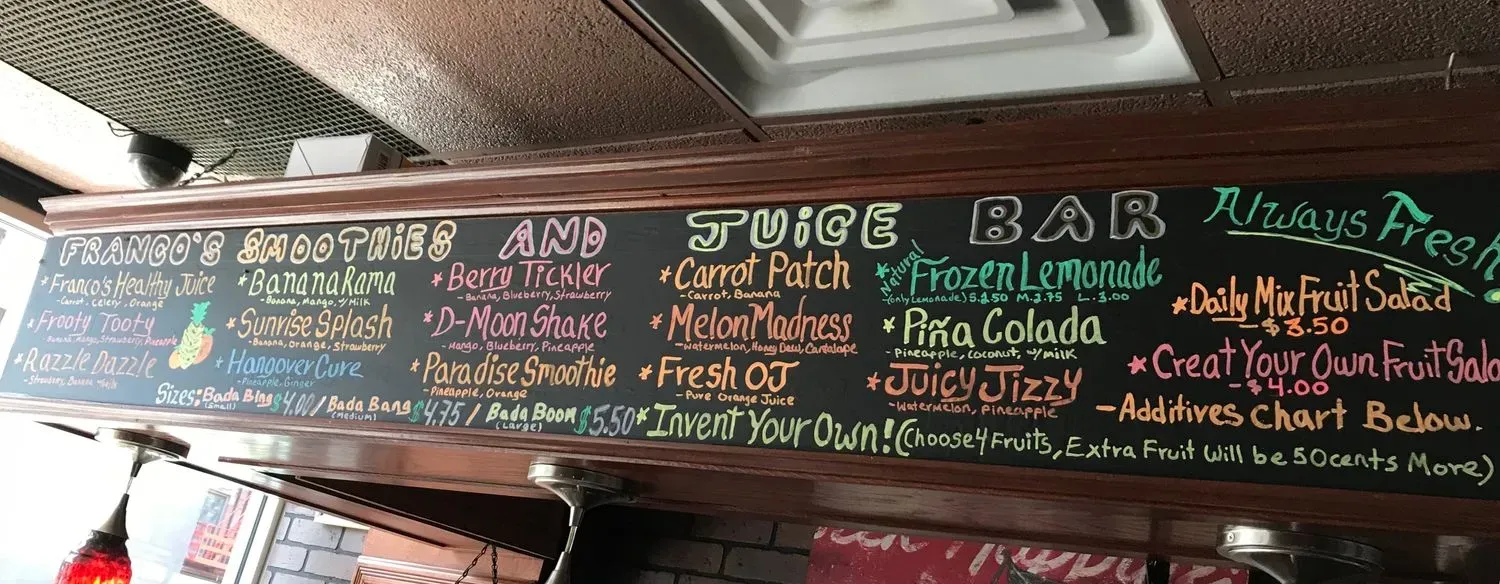 FRANCO'S SMOOTHIES AND JUICE BAR
Always Fresh!
*Franco's Healthy Juice
-Carrot, Celery, Orange
*Frooty Tooty
-Banana, Mango, Strawberry, Pineapple
*Razzle Dazzle
-Strawberry, Banana w/milk
*BananaRama
-Banana, Mango, w/ Milk
*Sunrise Splash
-Banana, Orange, Strawberry
*Hangover Cure
-Pineapple, Ginger
*Berry Tickler
-Banana, Blueberry, Strawberry
*D-Moon Shake
-Mango, Blueberry, Pineapple
*Paradise Smoothie
-Pineapple, Orange
Sizes: Bada Bing $4.00 / Bada Bang $4.75 / Bada Boom $5.50
(Small) (Medium) (Large)
*Carrot Patch
-Carrot, Banana
*Melon Madness
-Watermelon, Honey Dew, Cantalope
*Fresh OJ
-Pure Orange Juice
*Natural Frozen Lemonade
(only Lemonade) S.2.50 M.2.75 L.3.00
*Piña Colada
-Pineapple, Coconut, w/milk
*Juicy Jizzy
-Watermelon, Pineapple
*Invent Your Own! (Choose 4 Fruits, Extra Fruit Will be 50cents More)
*Daily Mix Fruit Salad
-$3.50
*Creat Your Own Fruit Sala
-$4.00
-Additives Chart Below.